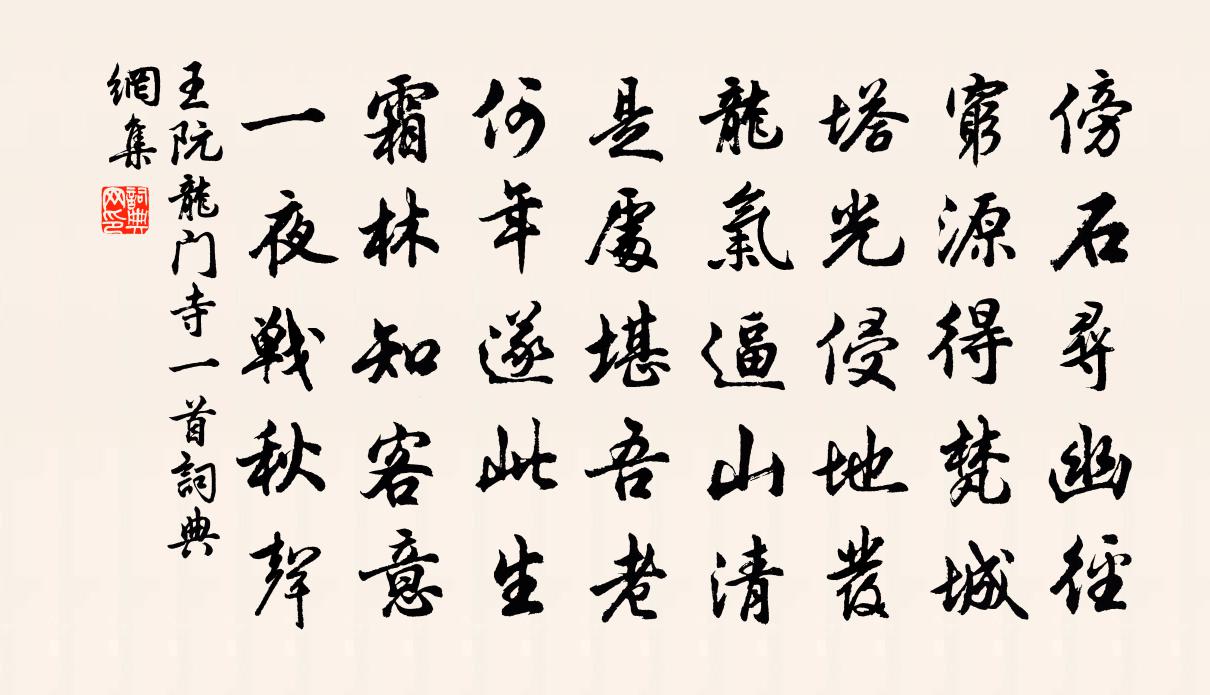 傍石尋幽徑
窮源得梵城
塔光侵地發
龍氣逼山清
是處堪吾老
何年遂此生
霜林知客意
一夜戰秋聲
王阮龍门寺一首詞典
網集
詞典
网印